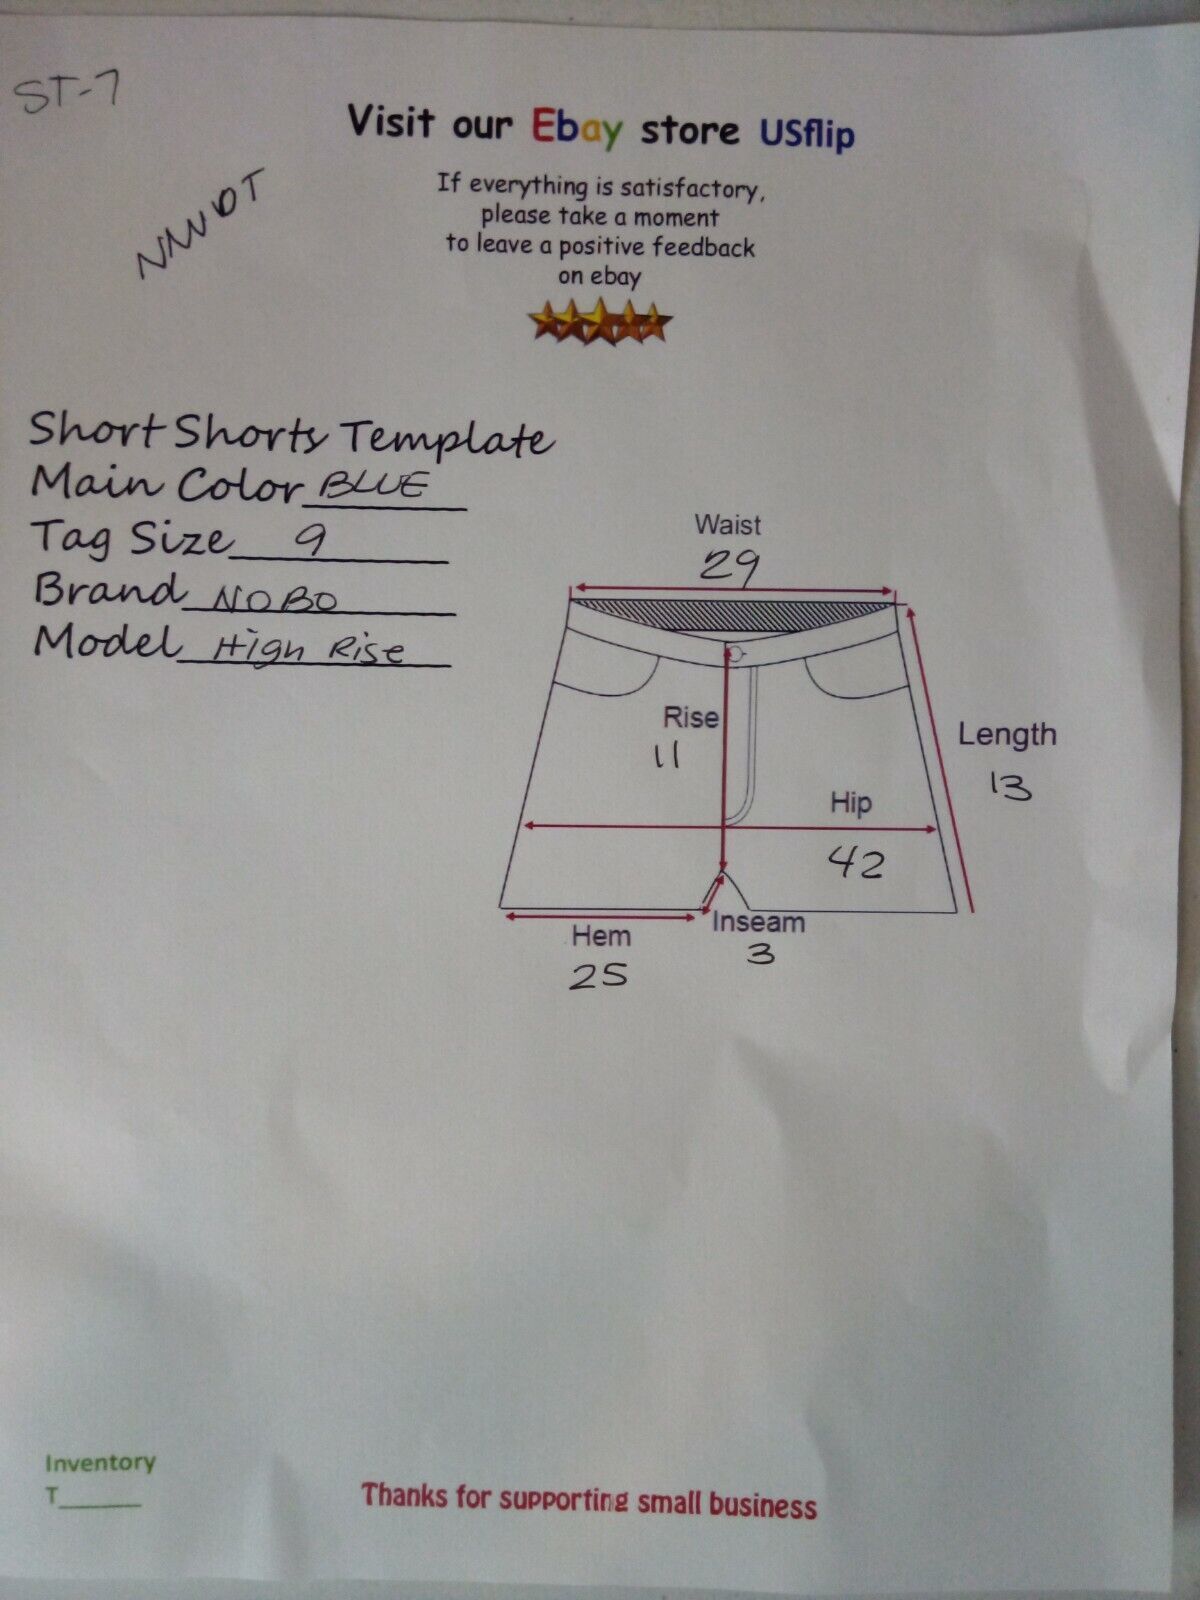 ST-7
Visit our Ebay store USflip
NWOT
If everything is satisfactory,
please take a moment
to leave a positive feedback
on ebay
Short Shorts Template
Main Color BLUE
Tag Size 9
Brand NOBO
Model High Rise
Waist
29
Rise
11
Length
13
Hip
42
Inseam
3
Hem
25
Inventory
T______
Thanks for supporting small business